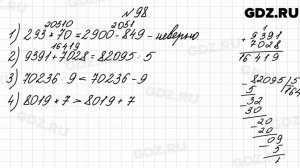 GDZ.RU
№98
20510 2051
1) 293 * 70 = 2900 - 849 - неверно
16419
2) 9391 + 7028 = 82095 : 5
3) 70236 · 9 < 70236 - 9
4) 8019 * 7 > 8019 + 7
1
+ 9391
7028
16 419
- 82095 | 5
5 164
- 32
30
- 20
20
- 09
5
1
GDZ.RU